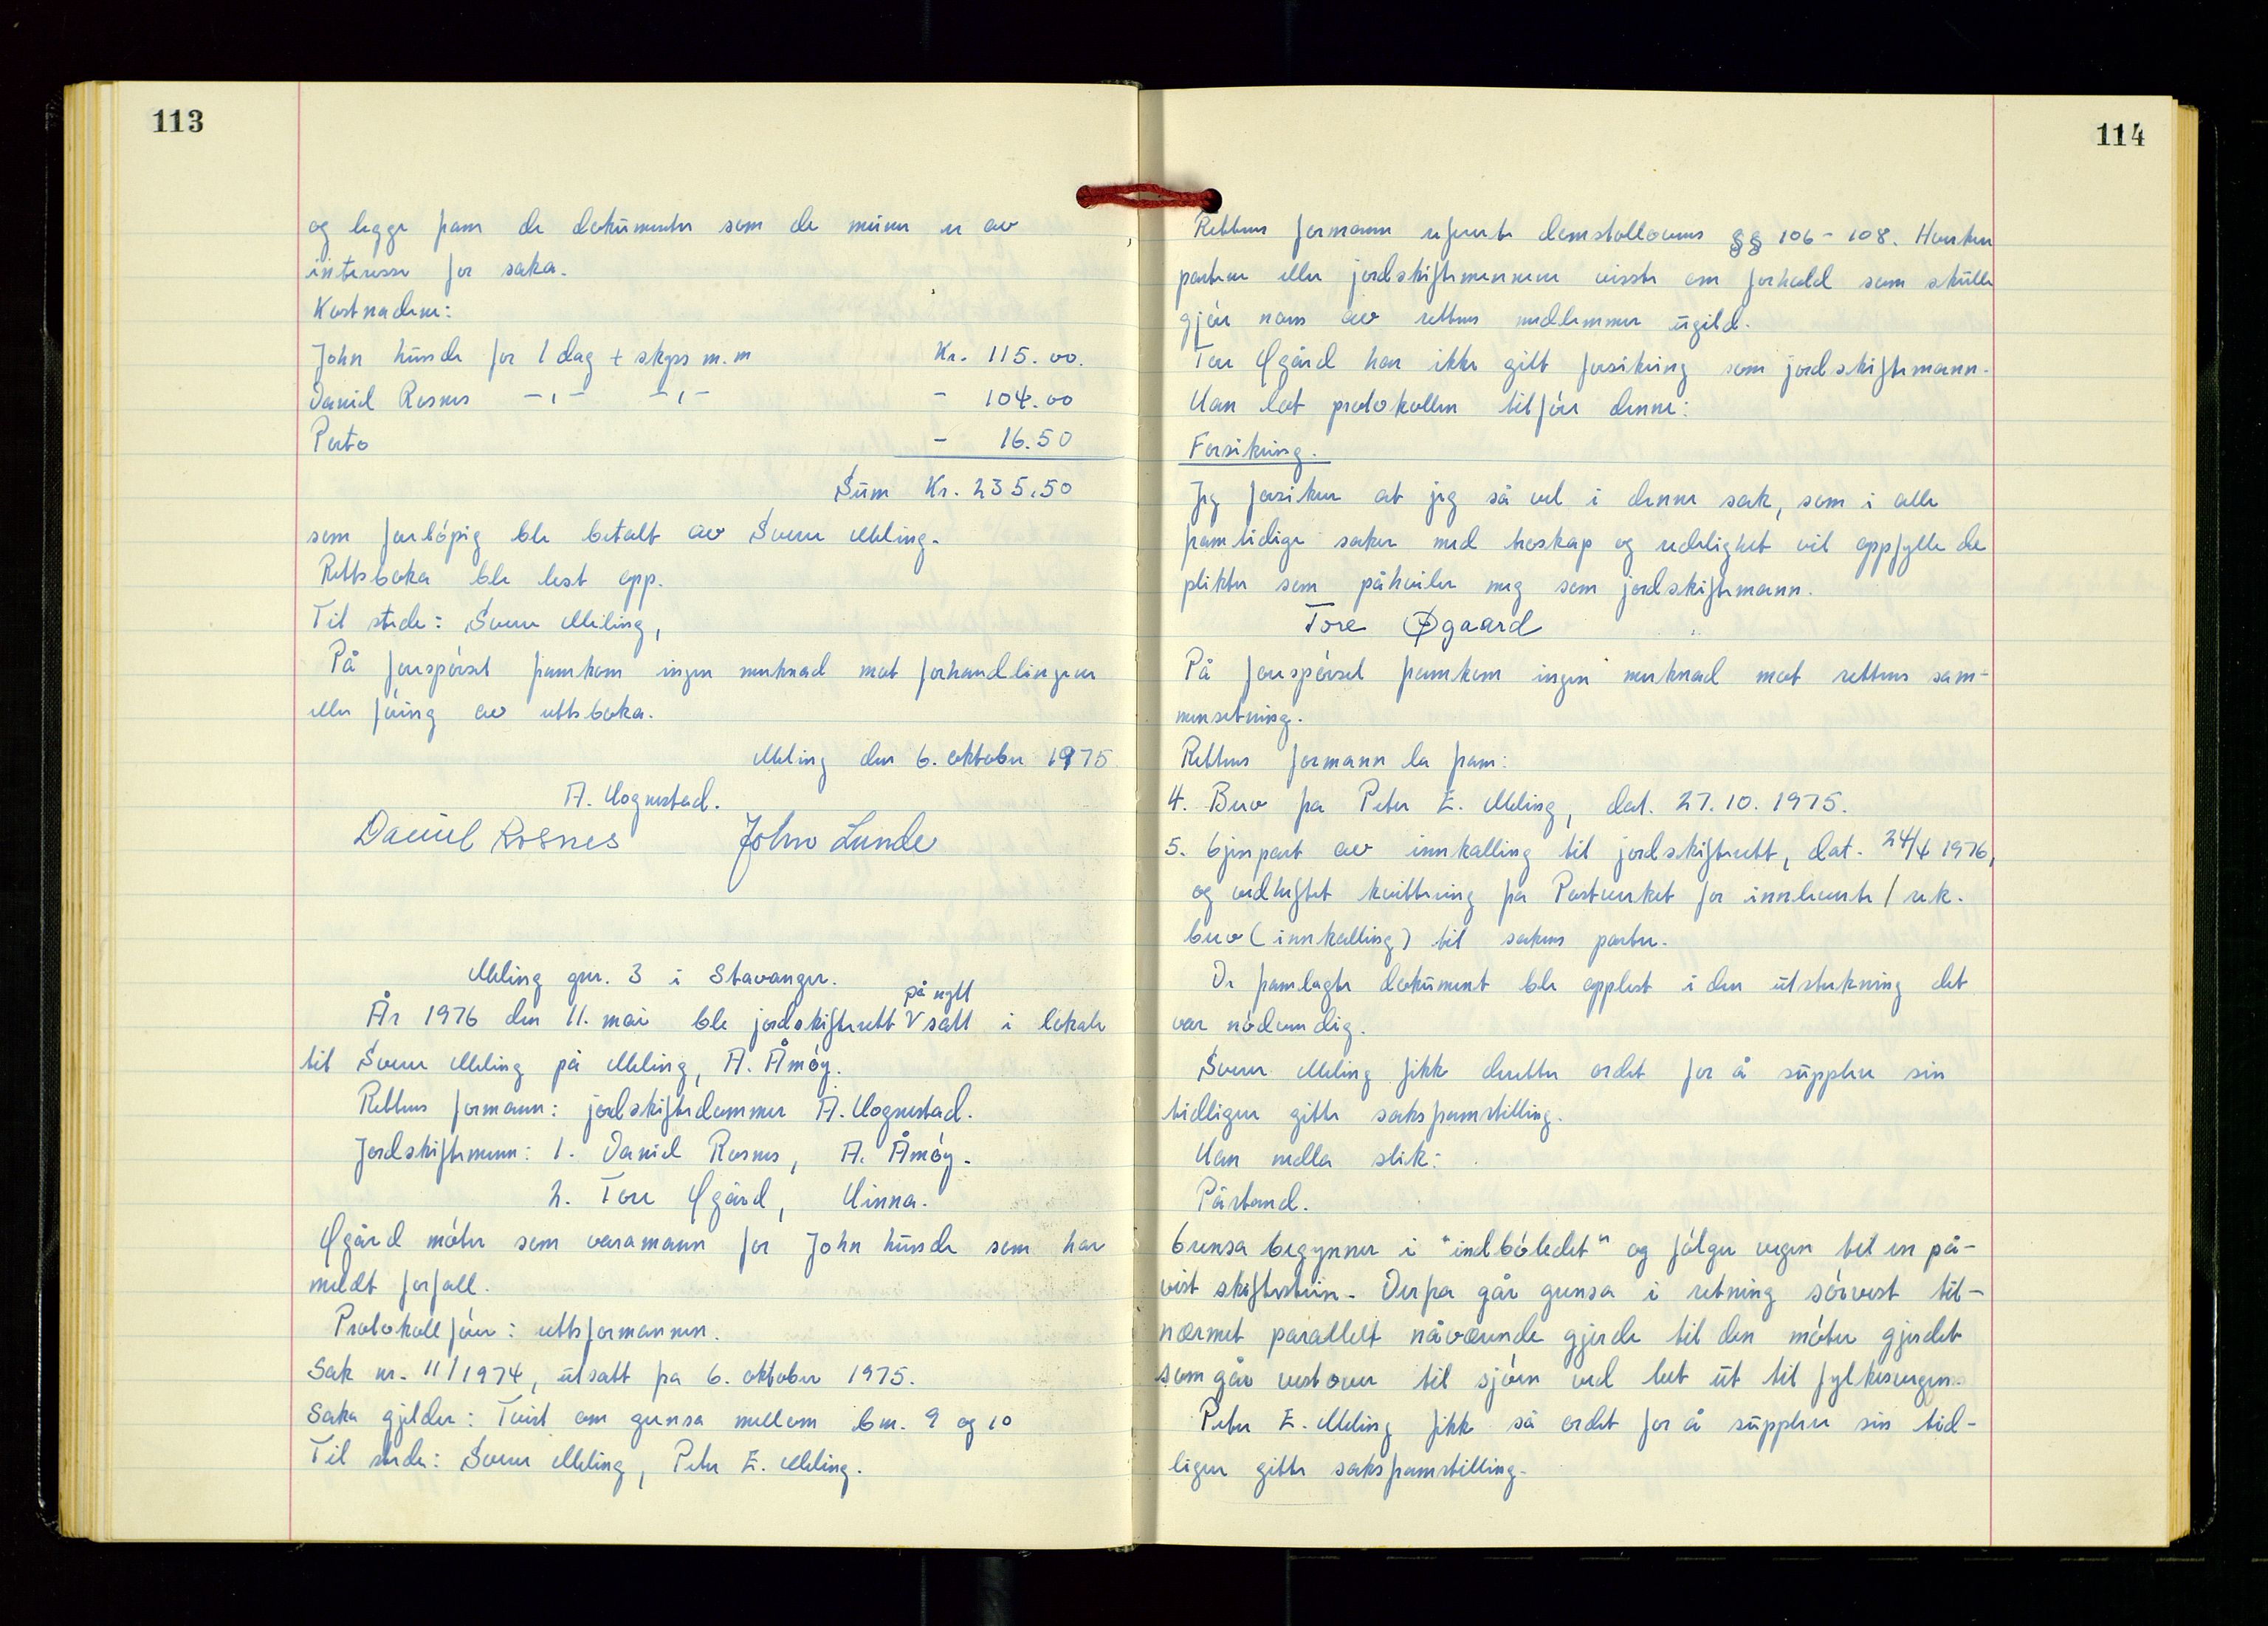 113
og legge fram de dokumenter som de mener er av
interesse for saka.
Kostnadene:
John Lunde for 1 dag + skyss m.m Kr. 115.00.
Daniel Rosnes -,- -,- - 104.00
Porto - 16.50
Sum Kr. 235.50
som forløpig ble betalt av Sverre Meling.
Rettsboka ble lest opp.
Til stede: Sverre Meling,
På forespørsel framkom ingen merknad mot forhandlingene
eller føring av rettsboka.
Meling den 6. oktober 1975
A. Hognestad.
Daniel Rosnes John Lunde
Meling gnr. 3 i Stavanger.
på nytt
År 1976 den 11. mai ble jordskifterett V satt i lokale
til Sverre Meling på Meling, A. Åmøy.
Rettens formann: jordskiftedommer A. Hognestad.
Jordskiftemenn: 1. Daniel Rosnes, A. Åmøy.
2. Tore Øgård, Hinna.
Øgård møter som varamann for John Lunde som har
meldt forfall.
Protokollfører: rettsformannen.
Sak nr. 11/1974, utsatt fra 6. oktober 1975.
Saka gjelder: Tvist om grensa mellom bnr. 9 og 10
Til stede: Sverre Meling, Peter E. Meling.
114
Rettens formann refererte domstollovens §§ 106-108. Hverken
partene eller jordskiftemennene visste om forhold som skulle
gjøre noen av rettens medlemmer ugild.
Tore Øgård har ikke gitt forsikring som jordskiftemann.
Han lot protokollen tilføre denne:
Forsikring.
Jeg forsikrer at jeg så vel i denne sak, som i alle
framtidige saker med troskap og redelighet vil oppfylle de
plikter som påhviler meg som jordskiftemann.
Tore Øgaard
På forespørsel framkom ingen merknad mot rettens sam-
mensetning.
Rettens formann la fram:
4. Brev fra Peter E. Meling, dat. 27.10.1975.
5. Gjenpart av innkalling til jordskifterett, dat. 24/4 1976,
og vedheftet kvittering fra Postverket for innleverte/rek.
brev (innkalling) til sakens parter.
De framlagte dokument ble opplest i den utstrekning det
var nødvendig.
Sverre Meling fikk deretter ordet for å supplere sin
tidligere gitte saksframstilling.
Han nedla slik:
Påstand.
Grensa begynner i "indbøledet" og følger vegen til en på-
vist skiftestein. Derfra går grensa i retning sørvest til-
nærmet parallelt nåværende gjerde til den møter gjerdet
som går vestover til sjøen ved leet ut til fylkesvegen.
Peter E. Meling fikk så ordet for å supplere sin tid-
ligere gitte saksframstilling.